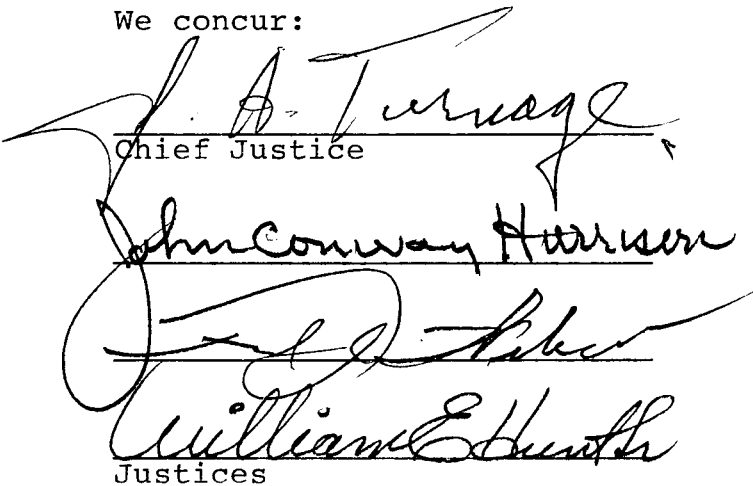 We concur:
J. A. Turnage
Chief Justice
John Conway Harrison
William E Hunt Jr
Justices